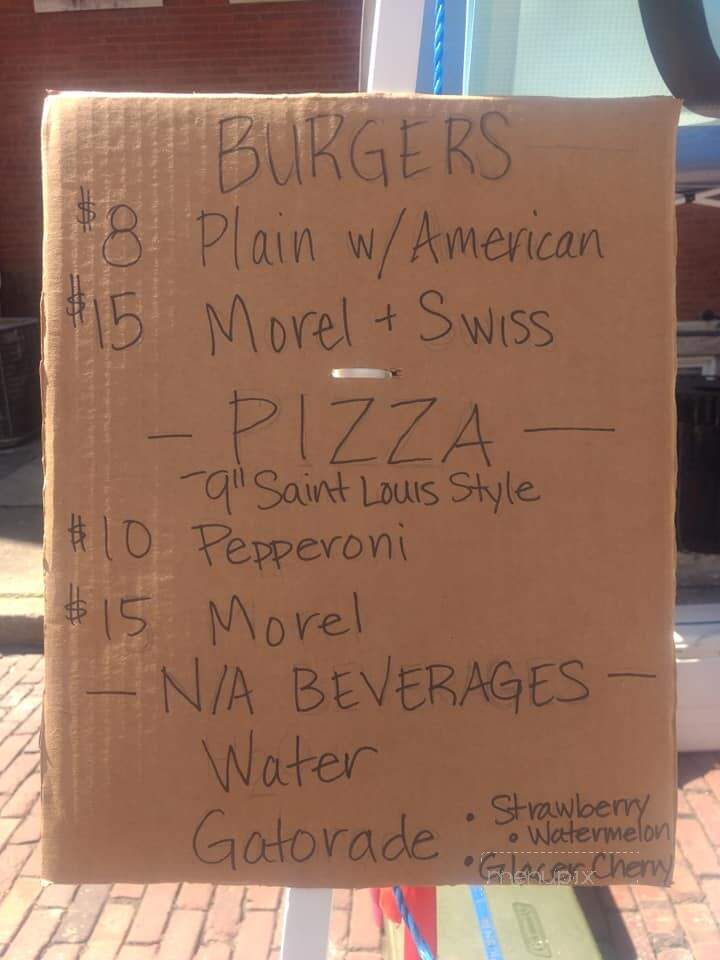 BURGERS
$8 Plain w/American
$15 Morel + Swiss
- PIZZA -
-9" Saint Louis Style
$10 Pepperoni
$15 Morel
- N/A BEVERAGES -
Water
Gatorade • Strawberry
• Watermelon
• Glacer Cherry
menupix